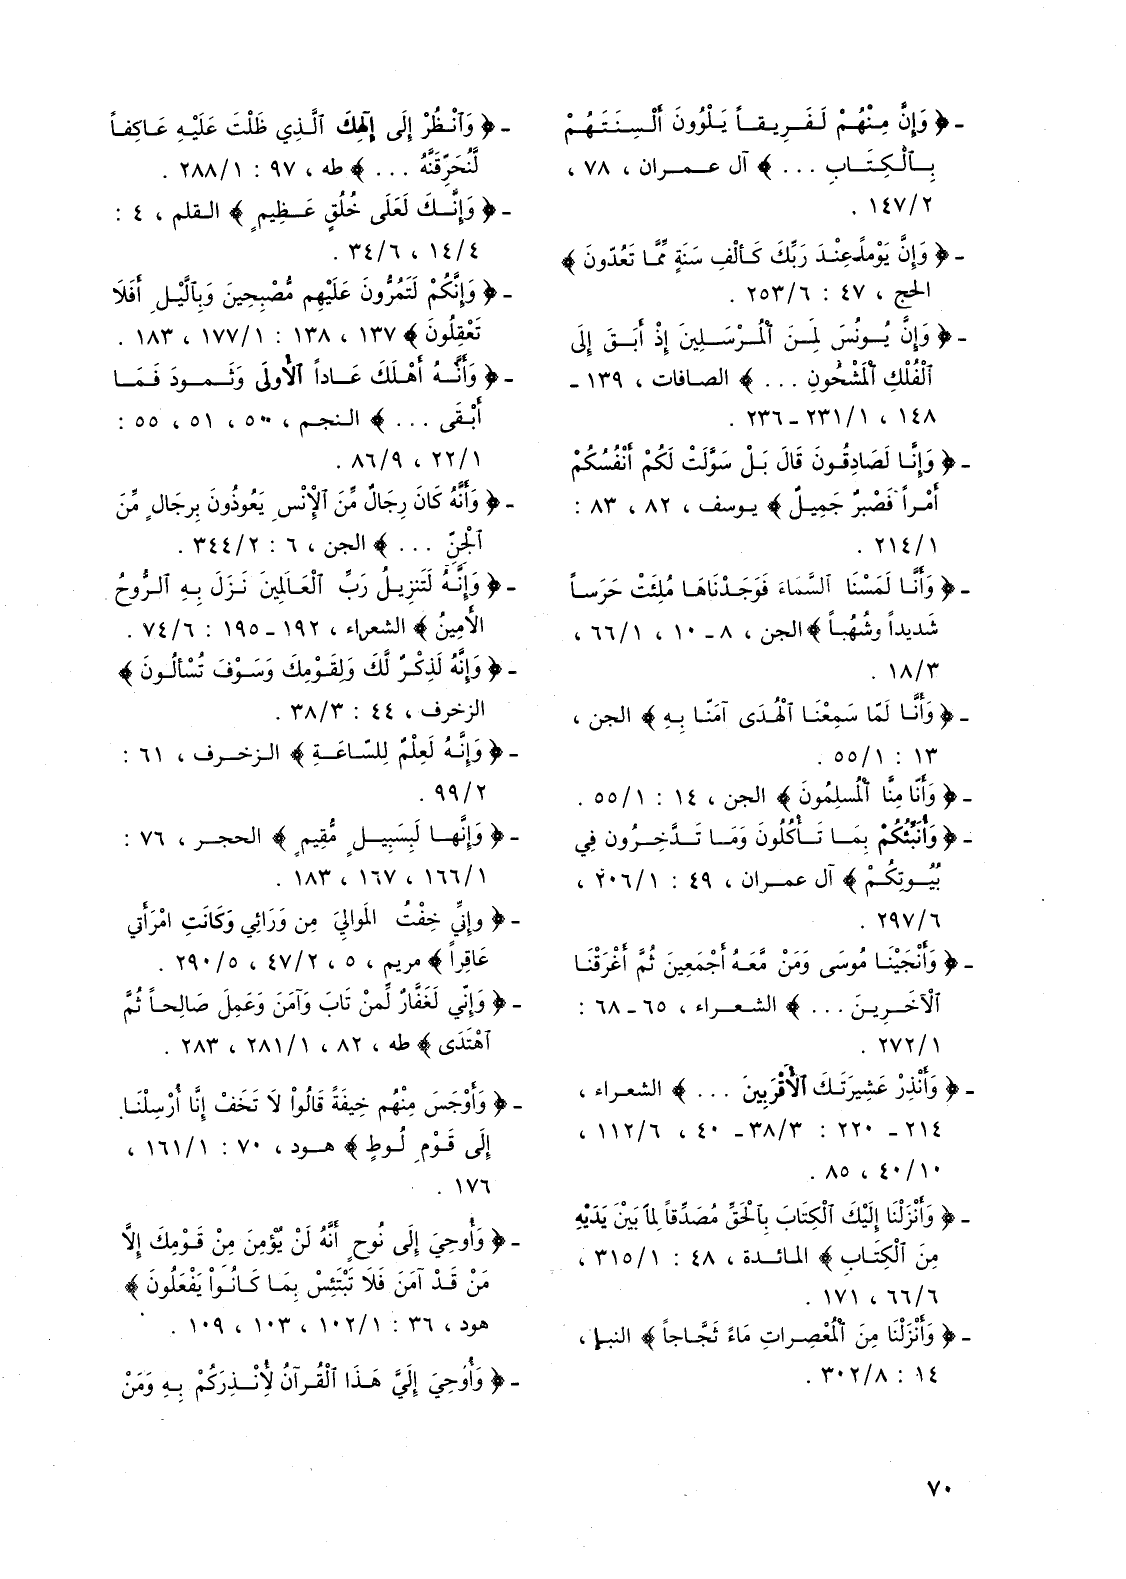 - ﴿ وَإِنَّ مِنْهُمْ لَفَرِيقاً يَلْوُونَ أَلْسِنَتَهُمْ
بِٱلْكِتَابِ ... ﴾ آل عمران ، ٧٨ ،
١٤٧/٢ .
- ﴿ وَإِنَّ يَوْماً عِنْدَ رَبِّكَ كَأَلْفِ سَنَةٍ مِّمَّا تَعُدّونَ ﴾
الحج ، ٤٧ : ٢٥٣/٦ .
- ﴿ وَإِنَّ يُونُسَ لَمِنَ ٱلْمُرْسَلِينَ إِذْ أَبَقَ إِلَى
ٱلْفُلْكِ ٱلْمَشْحُونِ ... ﴾ الصافات ، ١٣٩ -
١٤٨ ، ٢٣١/١ - ٢٣٦ .
- ﴿ وَإِنَّا لَصَادِقُونَ قَالَ بَلْ سَوَّلَتْ لَكُمْ أَنْفُسُكُمْ
أَمْراً فَصْبرٌ جَمِيلٌ ﴾ يوسف ، ٨٢ ، ٨٣ :
٢١٤/١ .
- ﴿ وَأَنَّا لَمَسْنَا ٱلسَّمَاءَ فَوَجَدْنَاهَا مُلِئَتْ حَرَساً
شَديداً وشُهُباً ﴾ الجن ، ٨ - ١٠ ، ٦٦/١ ،
١٨/٣ .
- ﴿ وَأَنَّا لَمّا سَمِعْنَا ٱلْهُدَى آمَنّا بِهِ ﴾ الجن ،
١٣ : ٥٥/١ .
- ﴿ وَأَنّا مِنَّا ٱلْمُسلِمُونَ ﴾ الجن ، ١٤ : ٥٥/١ .
- ﴿ وَأُنَبِّئُكُمْ بِمَا تَأْكُلُونَ وَمَا تَدَّخِرُون فِي
بُيُوتِكُمْ ﴾ آل عمران ، ٤٩ : ٢٠٦/١ ،
٢٩٧/٦ .
- ﴿ وَأَنْجَيْنَا مُوسَى وَمَنْ مَّعَهُ أَجْمَعِينَ ثُمَّ أَغْرَقْنَا
ٱلْآخَرِينَ ... ﴾ الشعراء ، ٦٥ - ٦٨ :
٢٧٢/١ .
- ﴿ وَأَنْذِرْ عَشِيرَتَكَ ٱلْأَقْرَبِينَ ... ﴾ الشعراء ،
٢١٤ - ٢٢٠ : ٣٨/٣ - ٤٠ ، ١١٢/٦ ،
٤٠/١٠ ، ٨٥ .
- ﴿ وَأَنْزَلْنَا إِلَيْكَ ٱلْكِتَابَ بِٱلْحَقِّ مُصَدِّقاً لِمَا بَيْنَ يَدَيْهِ
مِنَ ٱلْكِتَابِ ﴾ المائدة ، ٤٨ : ٣١٥/١ ،
٦٦/٦ ، ١٧١ .
- ﴿ وَأَنْزَلْنَا مِنَ ٱلْمُعْصِراتِ مَاءً ثَجَّاجاً ﴾ النبإ ،
١٤ : ٣٠٢/٨ .
- ﴿ وَٱنْظُرْ إِلَى إِلٰهِكَ ٱلَّذِي ظَلْتَ عَلَيْهِ عَاكِفاً
لَّنُحَرِّقَنَّهُ ... ﴾ طه ، ٩٧ : ٢٨٨/١ .
- ﴿ وَإِنَّكَ لَعَلَى خُلُقٍ عَظِيمٍ ﴾ القلم ، ٤ :
١٤/٤ ، ٣٤/٦ .
- ﴿ وَإِنَّكُمْ لَتَمُرُّونَ عَلَيْهِم مُّصْبِحِينَ وَبِٱلَّيْلِ أَفَلَا
تَعْقِلُونَ ﴾ ١٣٧ ، ١٣٨ : ١٧٧/١ ، ١٨٣ .
- ﴿ وَأَنَّهُ أَهْلَكَ عَاداً ٱلْأُولَى وَثَمودَ فَمَا
أَبْقَى ... ﴾ النجم ، ٥٠ ، ٥١ ، ٥٥ :
٢٢/١ ، ٨٦/٩ .
- ﴿ وَأَنَّهُ كَانَ رِجَالٌ مِّنَ ٱلْإِنْسِ يَعُوذُونَ بِرِجَالٍ مِّنَ
ٱلْجِنِّ ... ﴾ الجن ، ٦ : ٣٤٤/٢ .
- ﴿ وَإِنَّهُ لَتَنزِيلُ رَبِّ ٱلْعَالَمِينَ نَزَلَ بِهِ ٱلرُّوحُ
الأَمِينُ ﴾ الشعراء ، ١٩٢ - ١٩٥ : ٧٤/٦ .
- ﴿ وَإِنَّهُ لَذِكْرٌ لَّكَ وَلِقَوْمِكَ وَسَوْفَ تُسْأَلُونَ ﴾
الزخرف ، ٤٤ : ٣٨/٣ .
- ﴿ وَإِنَّهُ لَعِلْمٌ لِلسّاعَةِ ﴾ الزخرف ، ٦١ :
٩٩/٢ .
- ﴿ وَإِنَّها لَبِسَبِيلٍ مُّقِيمٍ ﴾ الحجر ، ٧٦ :
١٦٦/١ ، ١٦٧ ، ١٨٣ .
- ﴿ وإِنِّي خِفْتُ الْمَوالِيَ مِن وَرَائِي وَكَانَتِ امْرَأَتي
عَاقِراً ﴾ مريم ، ٥ ، ٤٧/٢ ، ٢٩٠/٥ .
- ﴿ وَإِنّي لَغَفَّارٌ لِّمنْ تَابَ وَآمَنَ وَعَمِلَ صَالِحاً ثُمَّ
ٱهْتَدَى ﴾ طه ، ٨٢ ، ٢٨١/١ ، ٢٨٣ .
- ﴿ وَأَوْجَسَ مِنْهُم خِيفَةً قَالُواْ لاَ تَخَفْ إِنَّا أُرْسِلْنَا
إِلَى قَوْمِ لُوطٍ ﴾ هود ، ٧٠ : ١٦١/١ ،
١٧٦ .
- ﴿ وَأُوحِيَ إِلَى نُوحٍ أَنَّهُ لَنْ يُؤْمِنَ مِنْ قَوْمِكَ إِلَّا
مَنْ قَدْ آمَنَ فَلَا تَبْتَئِسْ بِمَا كَانُواْ يَفْعَلُونَ ﴾
هود ، ٣٦ : ١٠٢/١ ، ١٠٣ ، ١٠٩ .
- ﴿ وَأُوحِيَ إِلَيَّ هَذَا ٱلْقُرآنُ لِأُنْذِرَكُمْ بِهِ وَمَنْ
٧٠